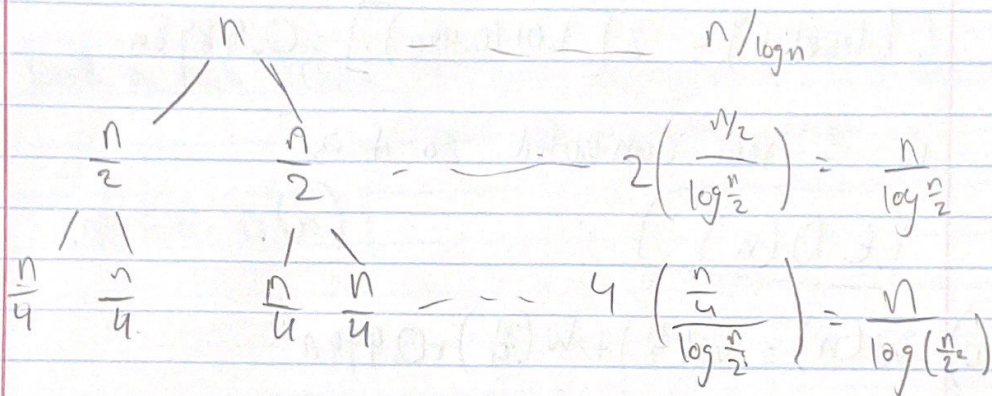 n n/logn
n/2 n/2 2((n/2)/(log n/2)) = n/(log n/2)
n/4 n/4 n/4 n/4 4((n/4)/(log n/2²)) = n/(log(n/2²))